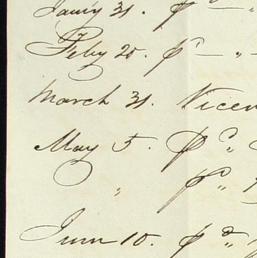 Jan'y 31. p' — "
Feby 20. p' — "
March 31. Vicen
May 5. p' "
" p'
Junio 10. p' "